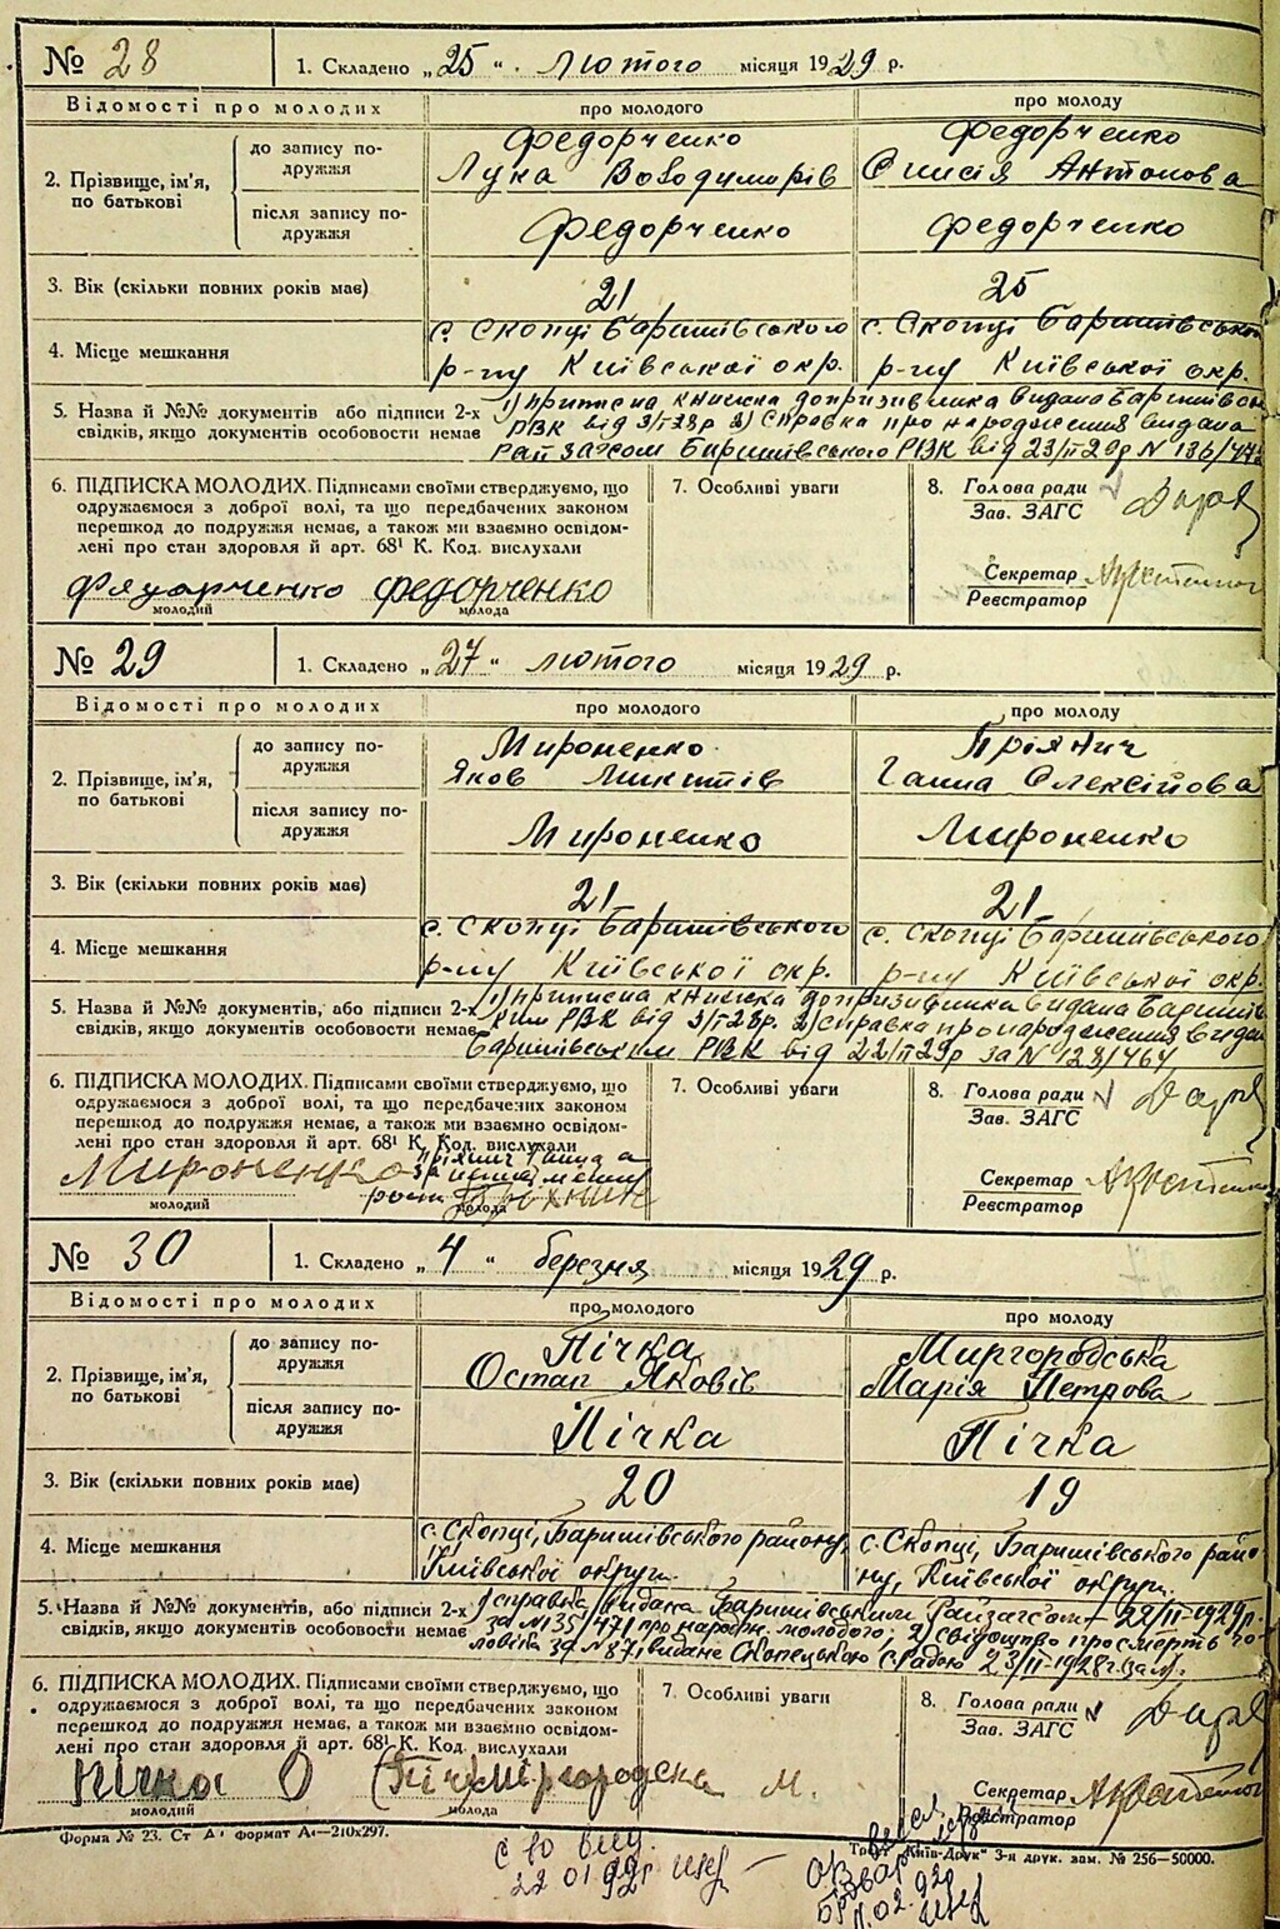 № 28 1. Складено „25“ лютого місяця 1929 р.
Відомості про молодих про молодого про молоду
2. Прізвище, ім'я, по батькові
до запису подружжя
Федорченко Федорченко
Лука Володимирів Антонова
після запису подружжя
Федорченко Федорченко
3. Вік (скільки повних років має) 21 25
4. Місце мешкання
с. Скопці Баришівського с. Скопці Баришівського
р-ну Київської окр. р-ну Київської окр.
5. Назва й №№ документів або підписи 2-х
свідків, якщо документів особовости немає
1) Приписна книжка допризивника видана Баришівск
РВК від 3/I 28р 2) Справка про народження видана
Рай загсом Баришівського РВК від 23/II 29р N 136/
6. ПІДПИСКА МОЛОДИХ. Підписами своїми стверджуємо, що
одружаємося з доброї волі, та що передбачених законом
перешкод до подружжя немає, а також ми взаємно освідом-
лені про стан здоровля й арт. 68¹ К. Код. вислухали
Фядарченко Федорченко
молодий молода
7. Особливі уваги
8. Голова ради
Зав. ЗАГС
Секретар
Реєстратор
№ 29 1. Складено „27“ лютого місяця 1929 р.
Відомості про молодих про молодого про молоду
2. Прізвище, ім'я, по батькові
до запису подружжя
Мироненко Пріянич
Яков Микитів Ганна Олексійова
після запису подружжя
Мироненко Мироненко
3. Вік (скільки повних років має) 21 21
4. Місце мешкання
с. Скопці Баришівського с. Скопці Баришівського
р-ну Київської окр. р-ну Київської окр.
5. Назва й №№ документів, або підписи 2-х
свідків, якщо документів особовости немає
1) Приписна книжка допризивника видана Баришівсь
ким РВК від 3/I 28р. 2) справка про народження видан
Баришівським РВК від 22/II 29р за N 128/464
6. ПІДПИСКА МОЛОДИХ. Підписами своїми стверджуємо, що
одружаємося з доброї волі, та що передбачених законом
перешкод до подружжя немає, а також ми взаємно освідом-
лені про стан здоровля й арт. 68¹ К. Код. вислухали
Мироненко Пріянич Ганна а
за
молодий молода
7. Особливі уваги
8. Голова ради
Зав. ЗАГС
Секретар
Реєстратор
№ 30 1. Складено „4“ березня місяця 1929 р.
Відомості про молодих про молодого про молоду
2. Прізвище, ім'я, по батькові
до запису подружжя
Пічка Миргородська
Остап Яковів Марія Петрова
після запису подружжя
Пічка Пічка
3. Вік (скільки повних років має) 20 19
4. Місце мешкання
с. Скопці, Баришівського району, с. Скопці, Баришівського райо-
Київської округи. ну, Київської округи.
5. Назва й №№ документів, або підписи 2-х
свідків, якщо документів особовости немає
1) справка видана Баришівським Райзагс'ом 22/II-1929р.
за N135/471 про народж. молодого; 2) свідоцтво про смерть чо-
ловіка за N 87, видане Скопецькою с.Радою 23/II-1928
6. ПІДПИСКА МОЛОДИХ. Підписами своїми стверджуємо, що
одружаємося з доброї волі, та що передбачених законом
перешкод до подружжя немає, а також ми взаємно освідом-
лені про стан здоровля й арт. 68¹ К. Код. вислухали
Пічка О (Піч) Міргородска М.
молодий молода
7. Особливі уваги
8. Голова ради
Зав. ЗАГС
Секретар
Реєстратор
Форма № 23. Ст А4 формат А4—210х297.
Трест "Київ-Друк" 3-я друк. зам. № 256—50000.
22 01 92г
11.02.92г